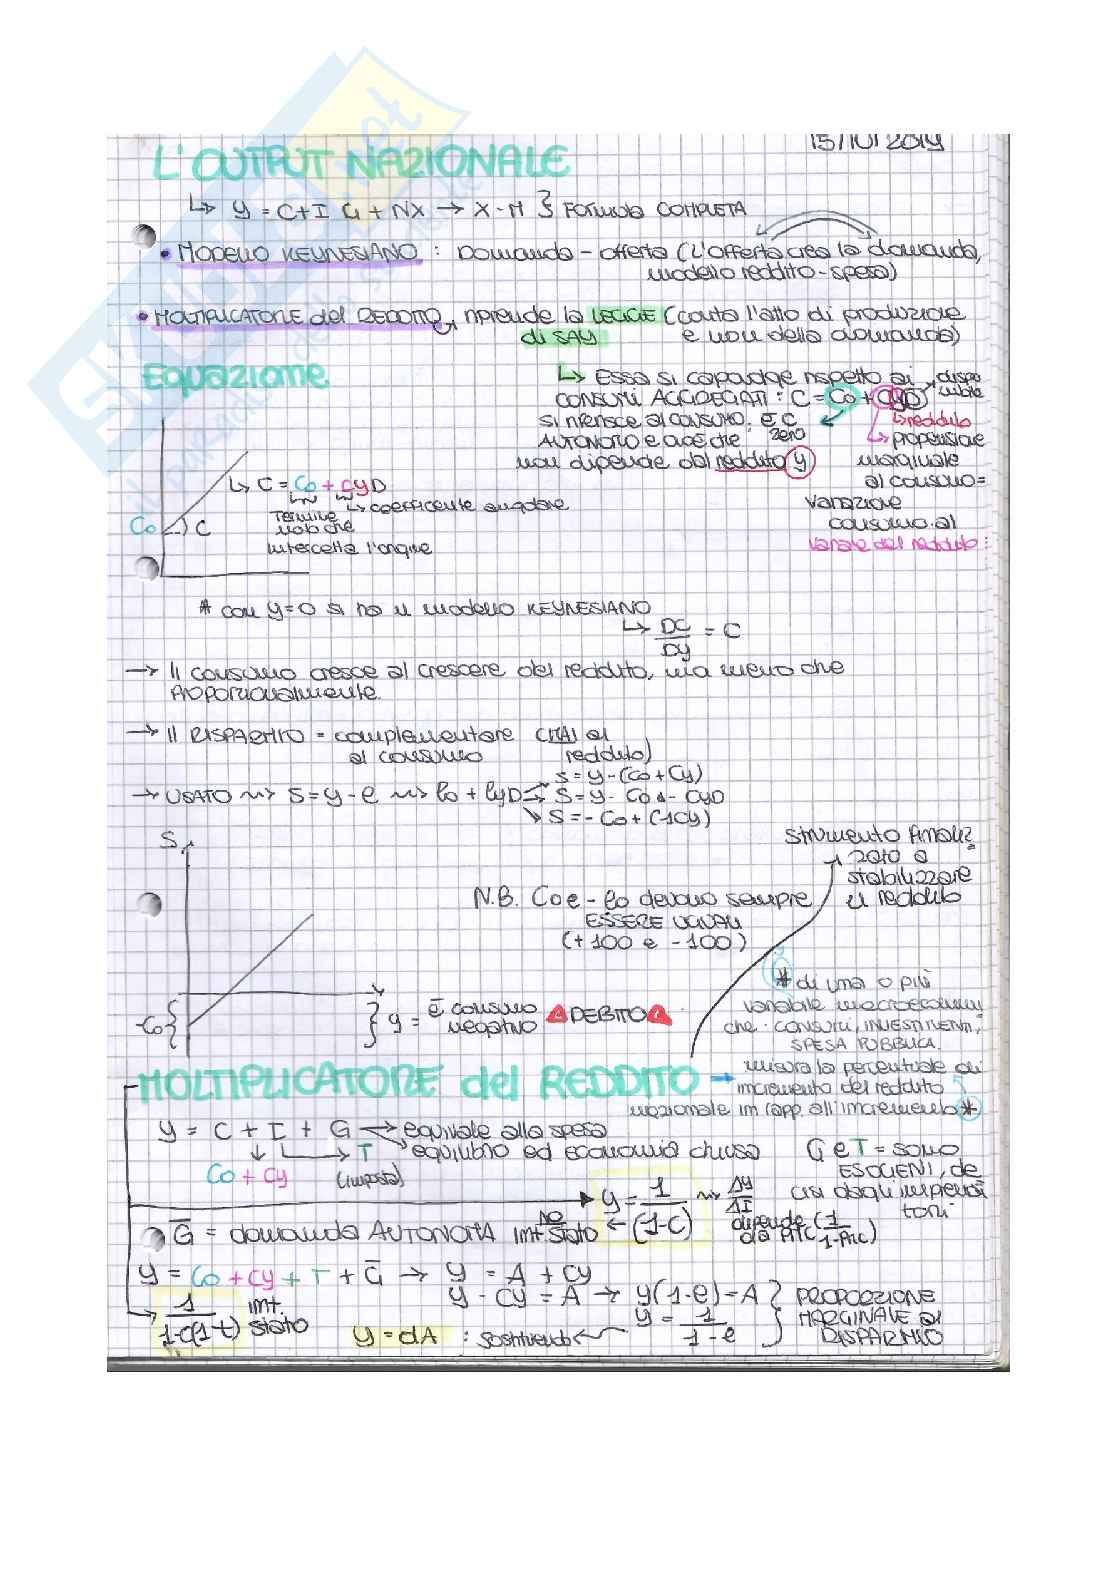 15/10/2014
L'OUTPUT NAZIONALE
↳ y = C+I G + NX → X-M } FORMULA COMPLETA
• MODELLO KEYNESIANO : DOMANDA - OFFERTA (L'OFFERTA crea la domanda,
modello reddito-spesa)
• MOLTIPLICATORE del REDDITO, riprende la LEGGE (conta l'atto di produzione
di SAY e non della domanda)
Equazione
↳ Essa si capovolge rispetto ai
CONSUMI AGGREGATI : C = Co + CyD
dispo
nibile
si riferisce al consumo, è C
AUTONOMO e cioè che zero
non dipende dal reddito y
↳ reddito
↳ propensione
marginale
al consumo =
variazione
consumo al
variare del reddito :
↳ C = Co + CyD
Termine
noto che
intercetta l'origine
↳ coefficiente angolare
Co
C
* con y=0 si ha il modello KEYNESIANO
↳ DC/Dy = C
→ Il consumo cresce al crescere del reddito, ma meno che
PROPORZIONALMENTE.
→ Il RISPARMIO = complementare (MAI al
al consumo reddito)
S = y - (Co + Cy)
→ USATO ~> S = y - C ~> Co + CyD → S = y - Co - CyD
↘ S = - Co + (-1Cy)
S
STRUMENTO finaliz
zato a
stabilizzare
il reddito
N.B. Co e - Co devono sempre
ESSERE UGUALI
(+100 e -100)
* di una o più
variabile macroeconomi
che : CONSUMI, INVESTIMENTI,
SPESA PUBBLICA.
-Co { } y = è consumo
negativo DEBITO
MOLTIPLICATORE del REDDITO → misura la percentuale di
incremento del reddito
nazionale in rapp. all'incremento *
y = C + I + G → equivale alla spesa
→ T equilibrio ed economia chiusa
Co + Cy (imposta)
G e T = sono
ESOGENI, de
cisi dagli imprendi
tori
y = 1/(1-C) ~> Δy/ΔI
G̅ = domanda AUTONOMA int. stato NO
dipende da PMC (1/1-PMC)
y = Co + Cy + T + G̅ → y = A + Cy
y - Cy = A → y(1-C) = A
y = 1/1-C
} PROPORZIONE
MARGINALE al
RISPARMIO
1/1-C(1-t) int. stato
y = dA : sostituendo